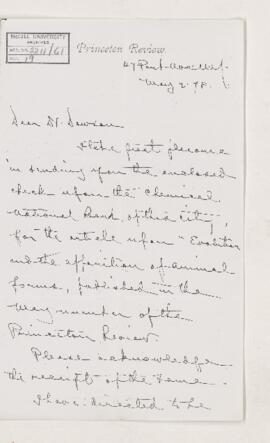 McGILL UNIVERSITY
ARCHIVES
ACC. NO. 2211/61
REF. 19
Princeton Review.
47 Park
May 2. 78.
Dear Dr. Dawson
I take great pleasure
in sending you the enclosed
check upon the Chemical
National Bank, of this city,
for the article upon "Evolution
and the apparition of animal
forms, published in the
May number of the
Princeton Review.
Please acknowledge
the receipt of the same.
I have directed to be